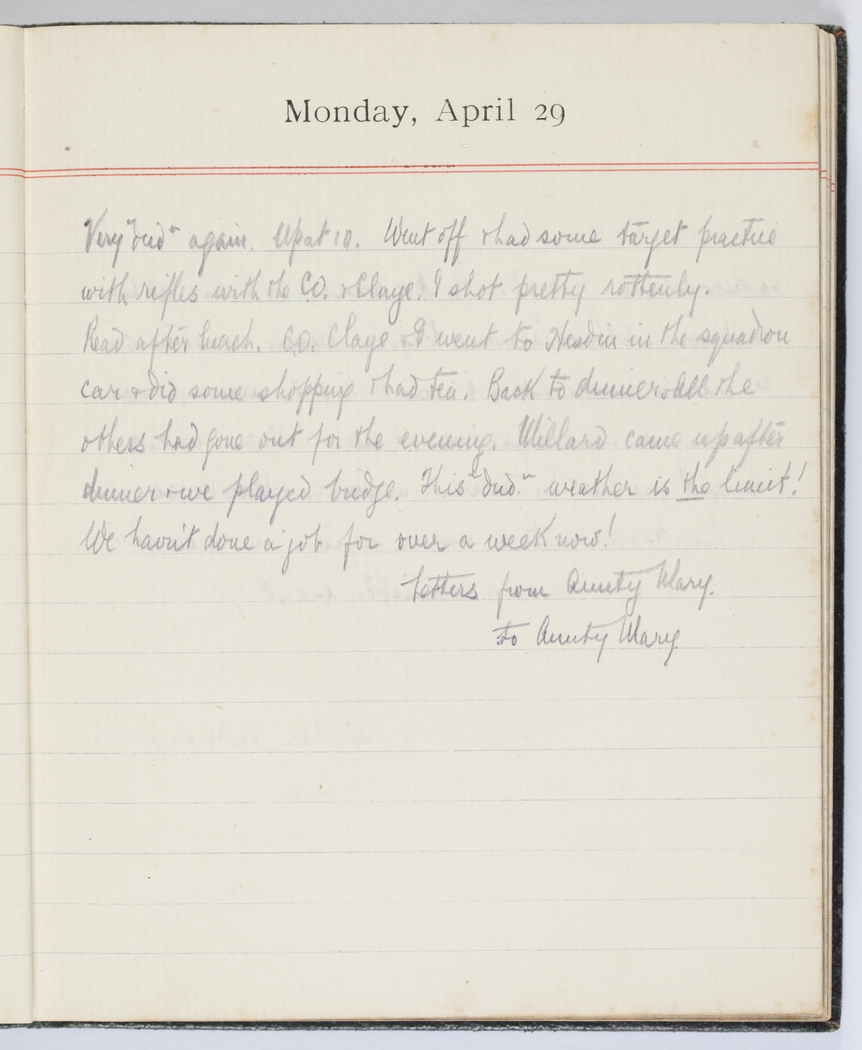 Monday, April 29
Very "dud" again. Up at 10. Went off & had some target practice
with rifles with the C.O. & Claye. I shot pretty rottenly.
Read after lunch. C.O. Claye & I went to Hesdin in the squadron
car & did some shopping & had tea. Back to dinner. All the
others had gone out for the evening. Millard came up after
dinner & we played bridge. This "dud" weather is the limit!
We havn't done a job for over a week now!
Letters from Aunty Mary.
to Aunty Mary.